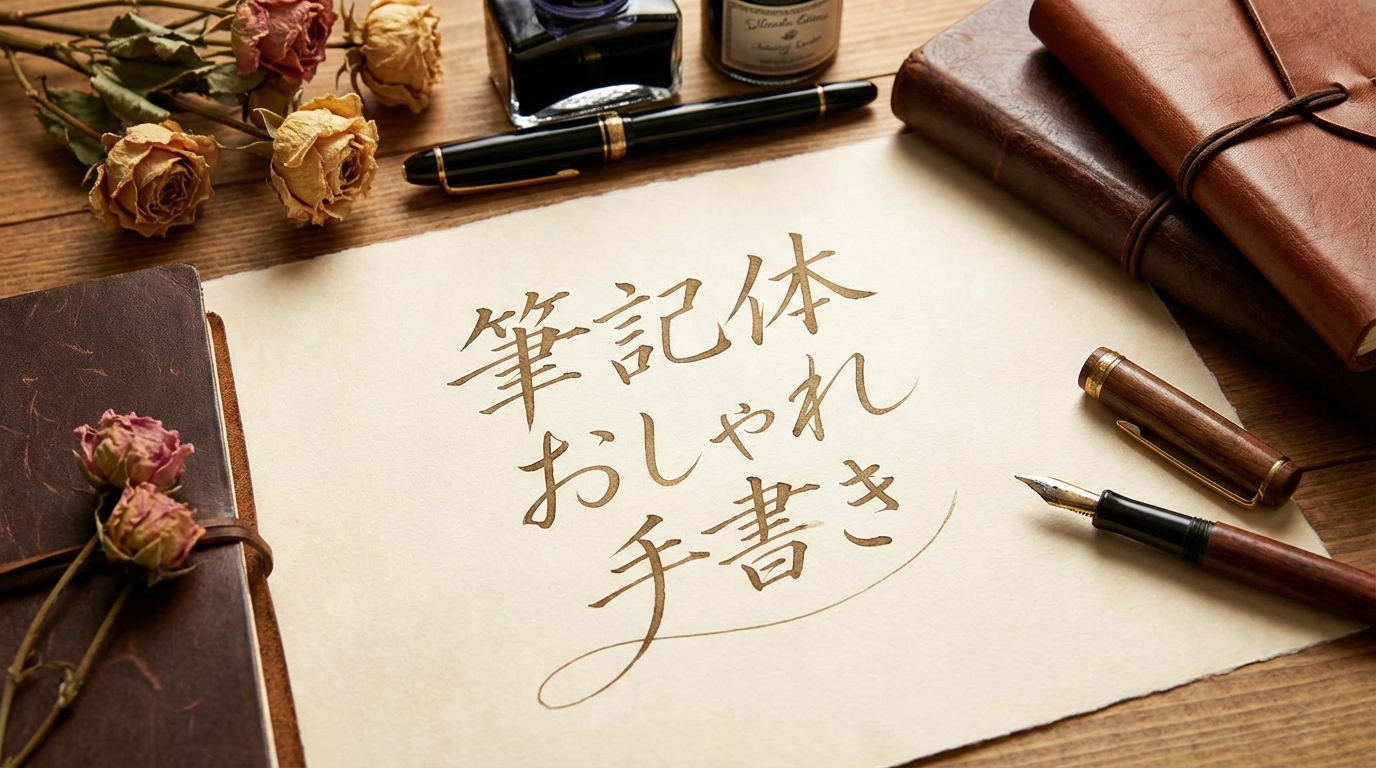 筆記体
おしゃれ
手書き